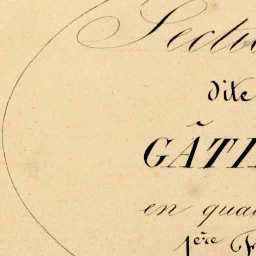 Section
dite
GÂTI
en qua
1ère F